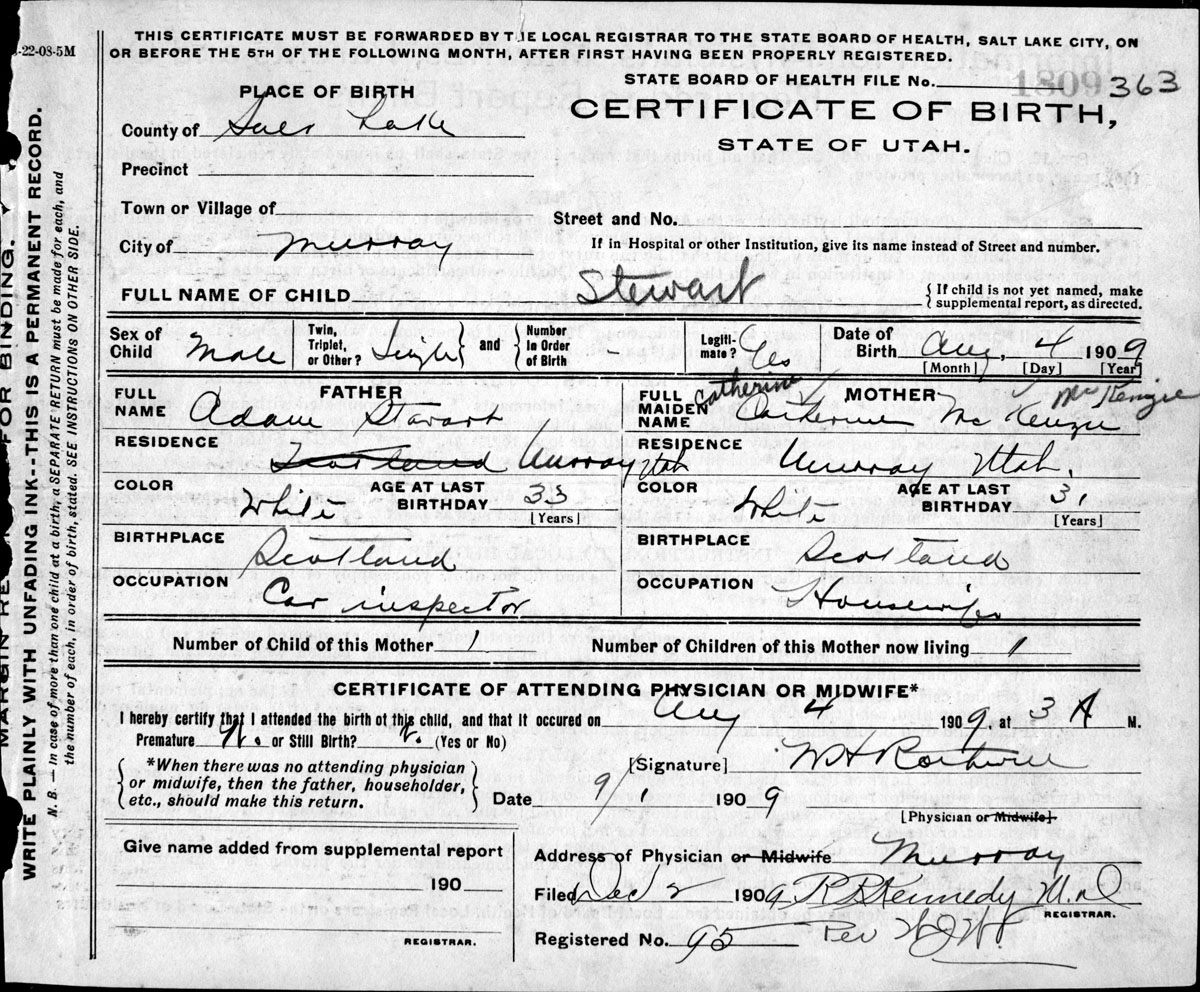 -22-08-5M
THIS CERTIFICATE MUST BE FORWARDED BY THE LOCAL REGISTRAR TO THE STATE BOARD OF HEALTH, SALT LAKE CITY, ON
OR BEFORE THE 5TH OF THE FOLLOWING MONTH, AFTER FIRST HAVING BEEN PROPERLY REGISTERED.
STATE BOARD OF HEALTH FILE No. 1809 363
PLACE OF BIRTH
CERTIFICATE OF BIRTH,
STATE OF UTAH.
County of Salt Lake
Precinct
Town or Village of
Street and No.
City of Murray
If in Hospital or other Institution, give its name instead of Street and number.
FULL NAME OF CHILD Stewart
{ If child is not yet named, make
supplemental report, as directed.
Sex of Child Male
Twin, Triplet, or Other? Single } and { Number In Order of Birth -
Legiti-mate? Yes
Date of Birth Aug. 4 1909
[Month] [Day] [Year]
FATHER
FULL NAME Adam Stewart
RESIDENCE Scotland Murray Utah
COLOR White
AGE AT LAST BIRTHDAY 33
[Years]
BIRTHPLACE Scotland
OCCUPATION Car inspector
MOTHER
Catherine McKenzie
FULL MAIDEN NAME Catherine McKenzie
RESIDENCE Murray Utah.
COLOR White
AGE AT LAST BIRTHDAY 31
[Years]
BIRTHPLACE Scotland
OCCUPATION Housewife
Number of Child of this Mother 1
Number of Children of this Mother now living 1
CERTIFICATE OF ATTENDING PHYSICIAN OR MIDWIFE*
I hereby certify that I attended the birth of this child, and that it occured on Aug 4 1909, at 3 A M.
Premature N. or Still Birth? N. (Yes or No)
{ *When there was no attending physician
or midwife, then the father, householder,
etc., should make this return. }
[Signature] W H Rothwell
Date 9/1 1909
[Physician or Midwife].
Give name added from supplemental report
190
REGISTRAR.
Address of Physician or Midwife Murray
Filed Dec 2 1909 Kennedy M.D
REGISTRAR.
Registered No. 95 Per
MARGIN FOR BINDING.
WRITE PLAINLY WITH UNFADING INK--THIS IS A PERMANENT RECORD.
N. B. — In case of more than one child at a birth, a SEPARATE RETURN must be made for each, and
the number of each, in order of birth, stated. SEE INSTRUCTIONS ON OTHER SIDE.